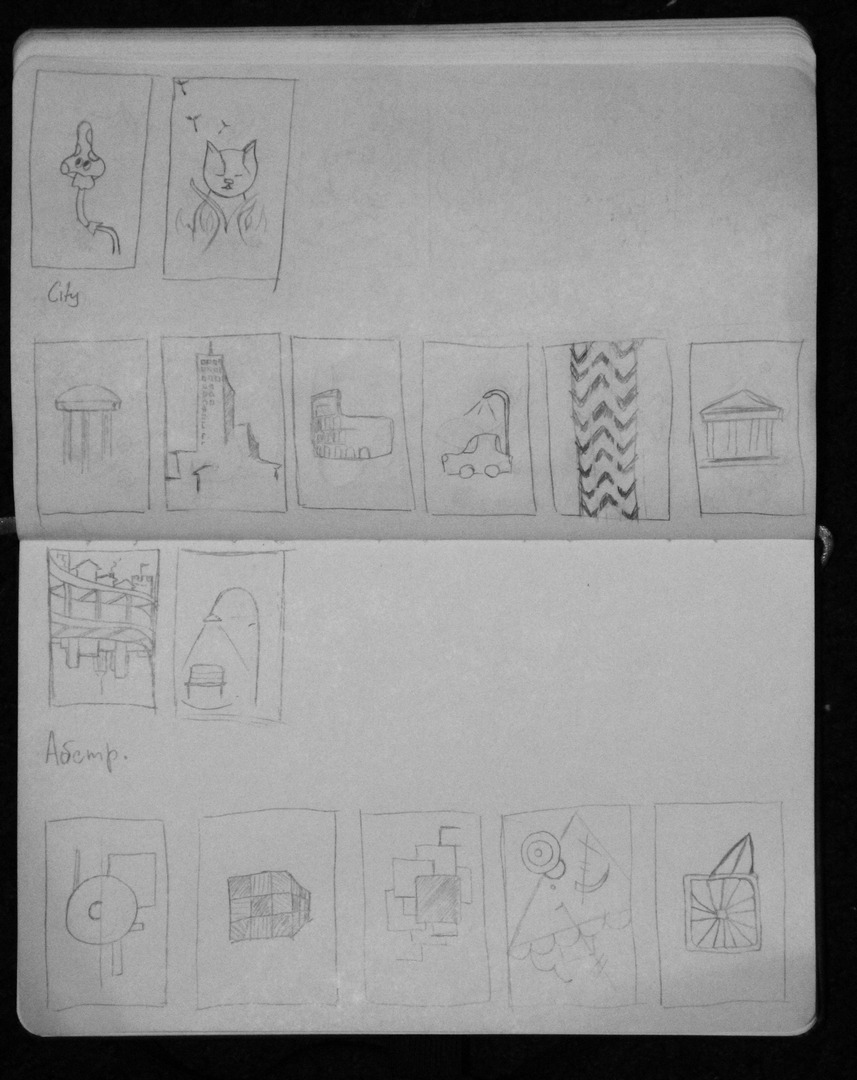 City
Абстр.